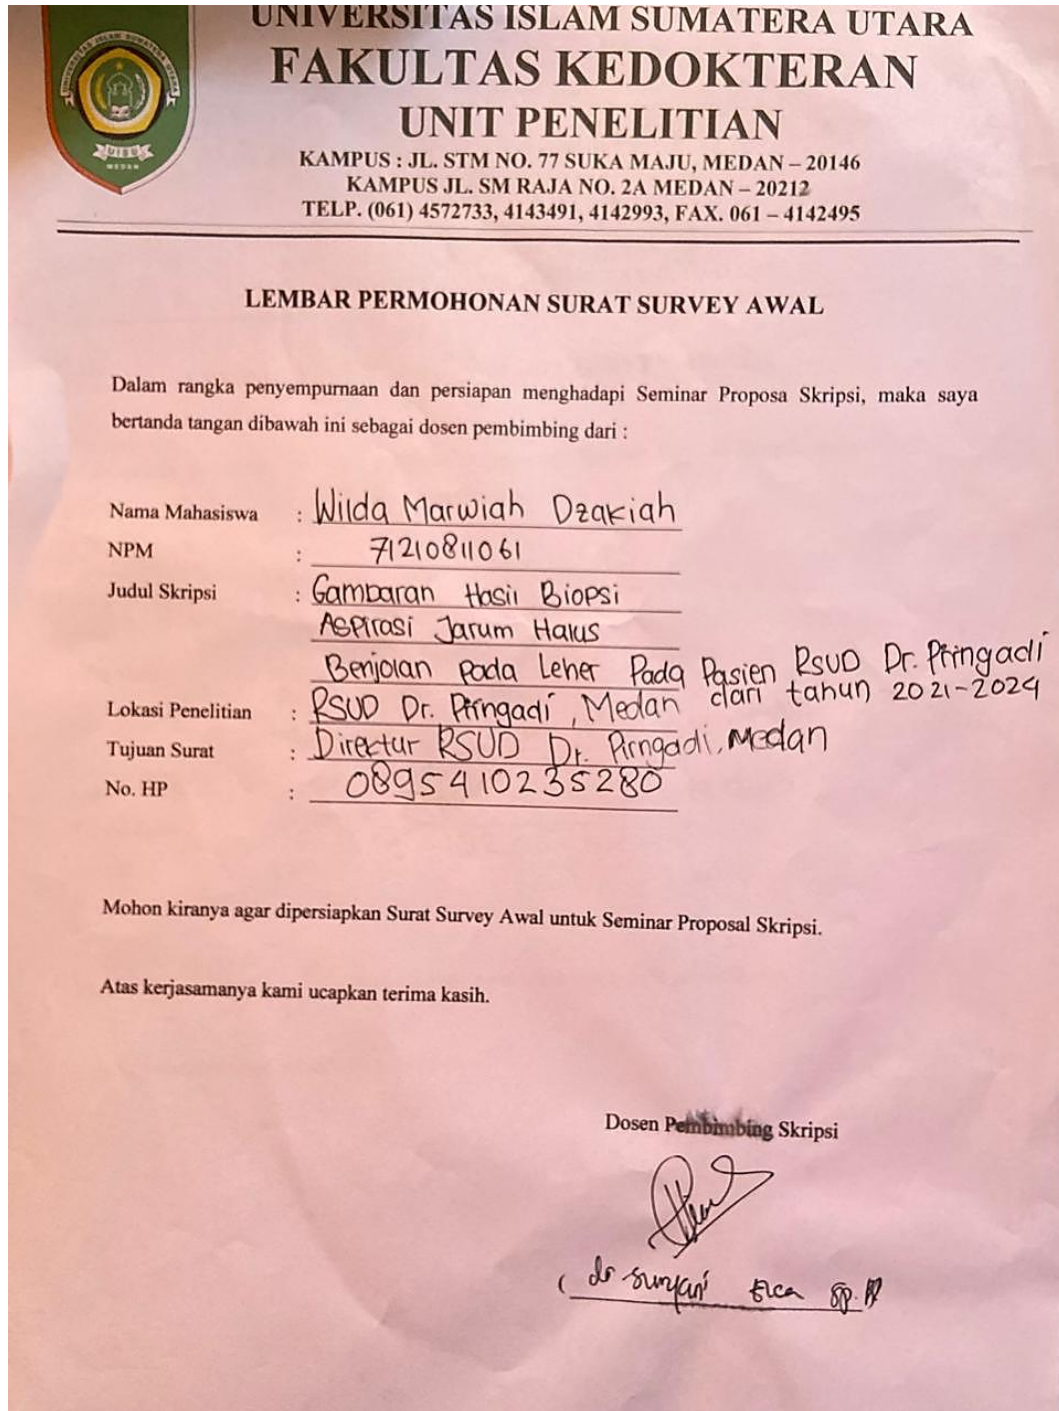 UNIVERSITAS ISLAM SUMATERA UTARA
FAKULTAS KEDOKTERAN
UNIT PENELITIAN
KAMPUS : JL. STM NO. 77 SUKA MAJU, MEDAN – 20146
KAMPUS JL. SM RAJA NO. 2A MEDAN – 20212
TELP. (061) 4572733, 4143491, 4142993, FAX. 061 – 4142495
UNIVERSITAS ISLAM SUMATERA UTARA
UISU
MEDAN
LEMBAR PERMOHONAN SURAT SURVEY AWAL
Dalam rangka penyempurnaan dan persiapan menghadapi Seminar Proposa Skripsi, maka saya
bertanda tangan dibawah ini sebagai dosen pembimbing dari :
Nama Mahasiswa : Wilda Marwiah Dzakiah
NPM : 71210811061
Judul Skripsi : Gambaran Hasil Biopsi
Aspirasi Jarum Halus
Benjolan pada Leher Pada Pasien RSUD Dr. Pirngadi
dari tahun 2021-2024
Lokasi Penelitian : RSUD Dr. Pirngadi, Medan
Tujuan Surat : Direktur RSUD Dr. Pirngadi, Medan
No. HP : 0895410235280
Mohon kiranya agar dipersiapkan Surat Survey Awal untuk Seminar Proposal Skripsi.
Atas kerjasamanya kami ucapkan terima kasih.
Dosen Pembimbing Skripsi
( dr suryani Sp.